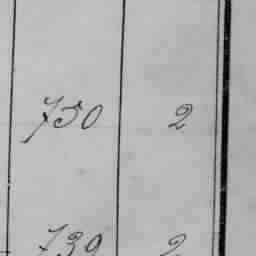 730 2
739 2